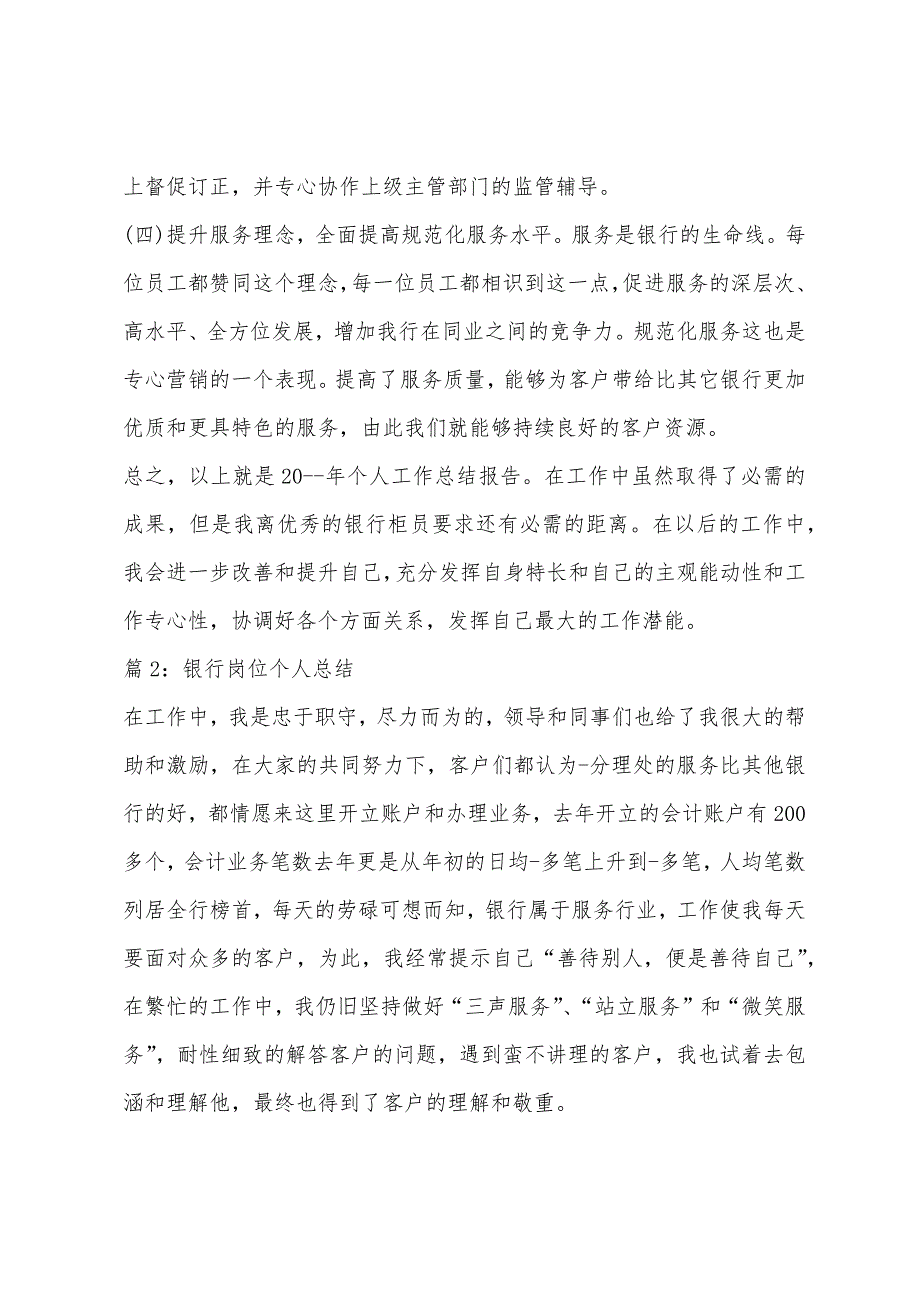 上督促订正，并专心协作上级主管部门的监管辅导。
(四)提升服务理念，全面提高规范化服务水平。服务是银行的生命线。每
位员工都赞同这个理念，每一位员工都相识到这一点，促进服务的深层次、
高水平、全方位发展，增加我行在同业之间的竞争力。规范化服务这也是
专心营销的一个表现。提高了服务质量，能够为客户带给比其它银行更加
优质和更具特色的服务，由此我们就能够持续良好的客户资源。
总之，以上就是20--年个人工作总结报告。在工作中虽然取得了必需的
成果，但是我离优秀的银行柜员要求还有必需的距离。在以后的工作中，
我会进一步改善和提升自己，充分发挥自身特长和自己的主观能动性和工
作专心性，协调好各个方面关系，发挥自己最大的工作潜能。
篇2：银行岗位个人总结
在工作中，我是忠于职守，尽力而为的，领导和同事们也给了我很大的帮
助和激励，在大家的共同努力下，客户们都认为-分理处的服务比其他银
行的好，都情愿来这里开立账户和办理业务，去年开立的会计账户有200
多个，会计业务笔数去年更是从年初的日均-多笔上升到-多笔，人均笔数
列居全行榜首，每天的劳碌可想而知，银行属于服务行业，工作使我每天
要面对众多的客户，为此，我经常提示自己“善待别人，便是善待自己”，
在繁忙的工作中，我仍旧坚持做好“三声服务”、“站立服务”和“微笑服
务”，耐性细致的解答客户的问题，遇到蛮不讲理的客户，我也试着去包
涵和理解他，最终也得到了客户的理解和敬重。